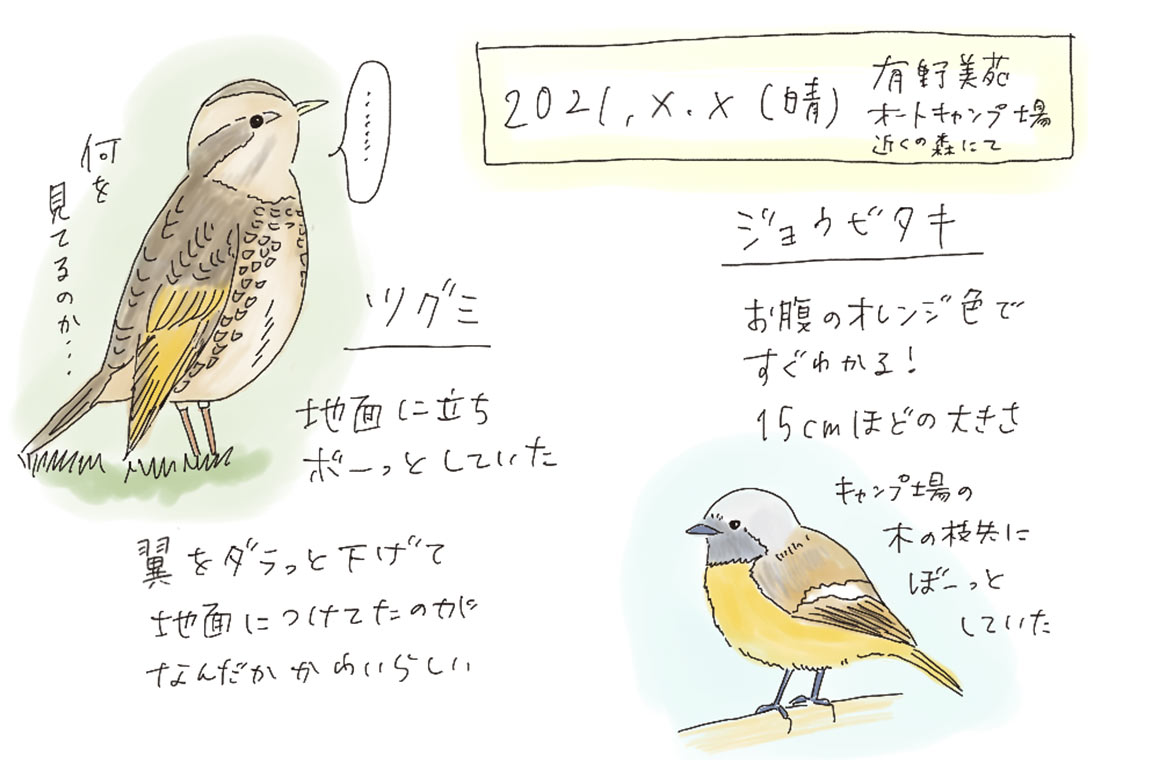 2021.x.x(晴)
有野美苑
オートキャンプ場
近くの森にて
何を
見てるのか…
………
ツグミ
地面に立ち
ボーっとしていた
翼をダラっと下げて
地面につけてたのが
なんだかかわいらしい
ジョウビタキ
お腹のオレンジ色で
すぐわかる!
15cmほどの大きさ
キャンプ場の
木の枝先に
ぼーっと
していた